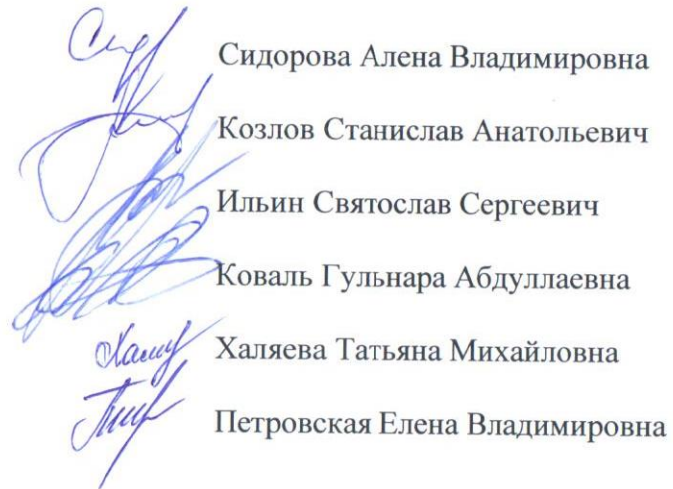 Сидорова Алена Владимировна
Козлов Станислав Анатольевич
Ильин Святослав Сергеевич
Коваль Гульнара Абдуллаевна
Халяева Татьяна Михайловна
Петровская Елена Владимировна